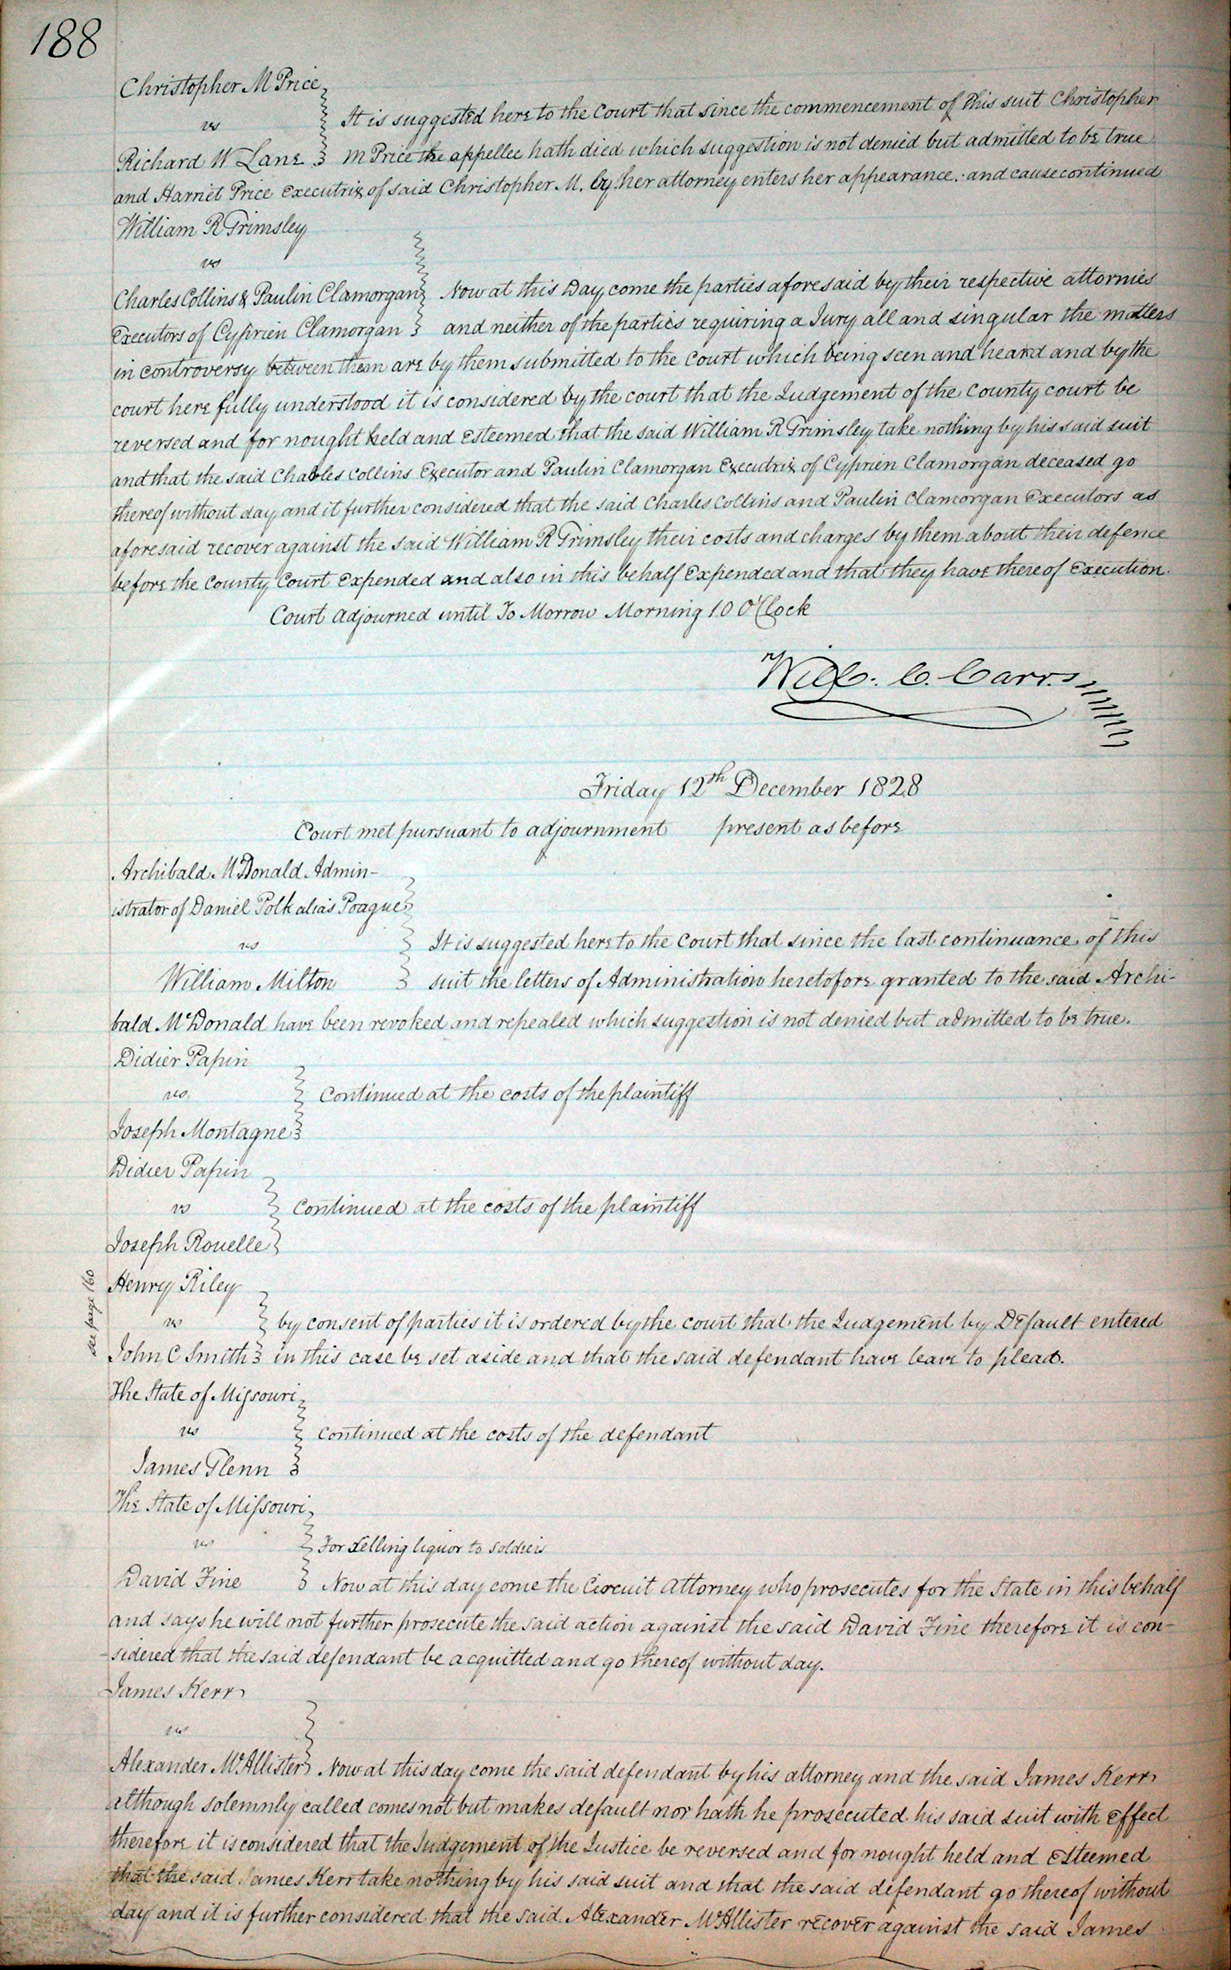 188
Christopher M Price
vs
It is suggested here to the Court that since the commencement of this suit Christopher
Richard W Lane M Price the appellee hath died which suggestion is not denied but admitted to be true
and Harriet Price Executrix of said Christopher M. by her attorney enters her appearance. and cause continued
William R Grimsley
vs
Charles Collins & Paulin Clamorgan Now at this Day come the parties aforesaid by their respective attornies
Executors of Cyprien Clamorgan and neither of the parties requiring a Jury all and singular the matters
in controversy between them are by them submitted to the Court which being seen and heard and by the
court here fully understood it is considered by the court that the Judgement of the County court be
reversed and for nought held and Esteemed that the said William R Grimsley take nothing by his said suit
and that the said Charles Collins Executor and Paulin Clamorgan Executrix of Cyprien Clamorgan deceased go
thereof without day and it further considered that the said Charles Collins and Paulin Clamorgan Executors as
aforesaid recover against the said William R Grimsley their costs and charges by them about their defence
before the County Court Expended and also in this behalf Expended and that they have thereof Execution.
Court adjourned until To Morrow Morning 10 O'Clock
Will. C. Carr
Friday 12th December 1828
Court met pursuant to adjournment present as before
Archibald McDonald Admin-
istrator of Daniel Polk alias Poague
vs It is suggested here to the Court that since the last continuance of this
William Milton suit the letters of Administration heretofore granted to the said Archi-
bald McDonald have been revoked and repealed which suggestion is not denied but admitted to be true.
Didier Papin
vs. Continued at the costs of the plaintiff
Joseph Montagne
Didier Papin
vs Continued at the costs of the plaintiff
Joseph Rouelle
see page 160
Henry Riley
vs by consent of parties it is ordered by the court that the Judgement by Default entered
John C Smith in this case be set aside and that the said defendant have leave to plead.
The State of Missouri
vs Continued at the costs of the defendant
James Glenn
The State of Missouri
vs For selling liquor to soldiers
David Fine Now at this day come the Circuit Attorney who prosecutes for the State in this behalf
and says he will not further prosecute the said action against the said David Fine therefore it is con-
-sidered that the said defendant be acquitted and go thereof without day.
James Kerr
vs
Alexander McAllister Now at this day come the said defendant by his attorney and the said James Kerr
although solemnly called comes not but makes default nor hath he prosecuted his said suit with Effect
therefore it is considered that the Judgement of the Justice be reversed and for nought held and Esteemed
that the said James Kerr take nothing by his said suit and that the said defendant go thereof without
day and it is further considered that the said Alexander McAllister recover against the said James